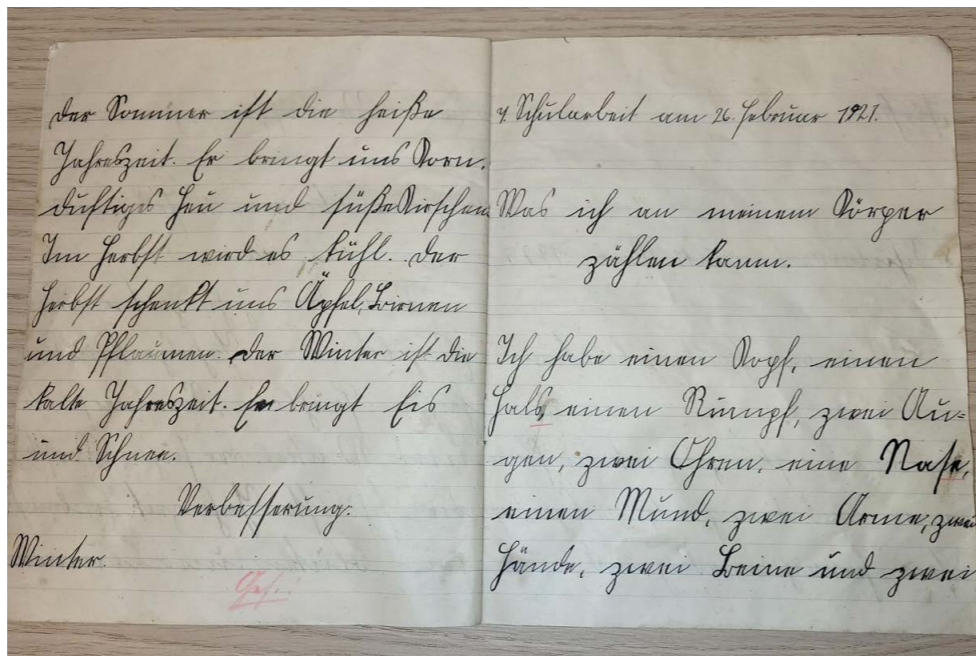 Der Sommer ist die heiße
Jahreszeit. Er bringt uns Korn,
duftiges Heu und süße Kirschen
Im Herbst wird es kühl. Der
Herbst schenkt uns Äpfel, Birnen
und Pflaumen. Der Winter ist die
kalte Jahreszeit. Er bringt Eis
und Schnee.
Verbesserung.
Winter.
Ges.
4. Schularbeit am 26. Februar 1921.
Was ich an meinem Körper
zählen kann.
Ich habe einen Kopf, einen
Hals, einen Rumpf, zwei Au=
gen, zwei Ohren, eine Nase,
einen Mund, zwei Arme, zwei
Hände, zwei Beine und zwei